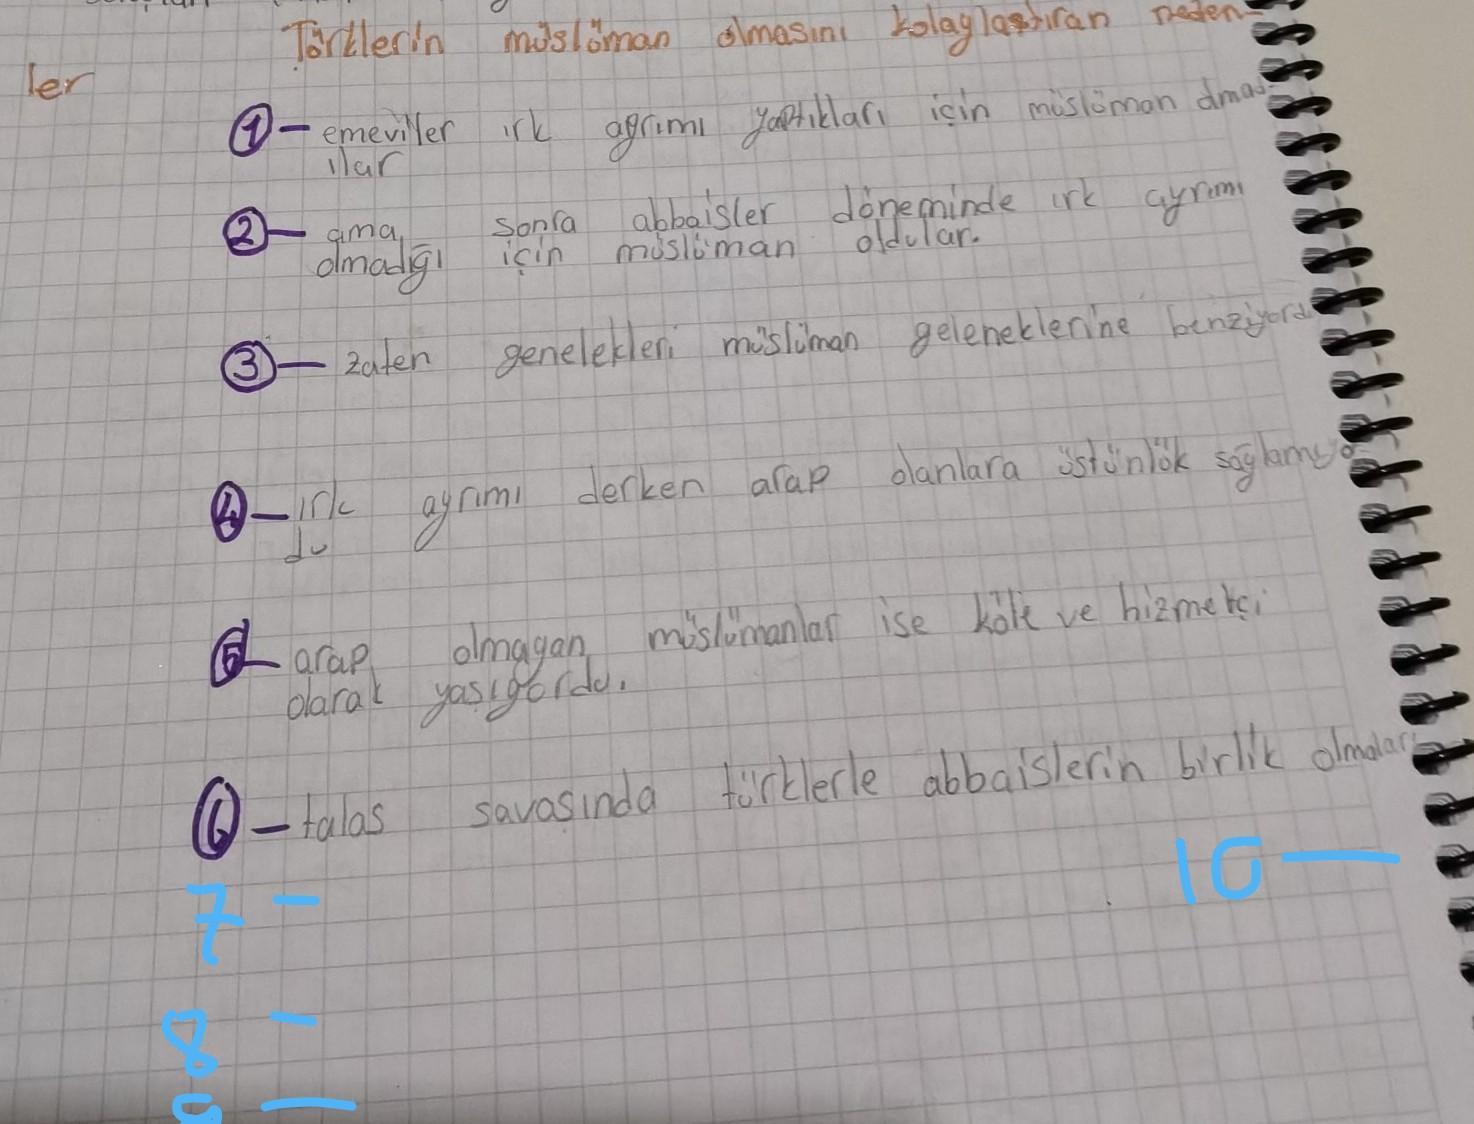 Törklerin müslöman olmasını kolaglastıran neden-
ler
1- emeviler ırk agrımı yaptıkları için müslöman olmad
ılar
2- ama sonra abbaisler döneminde ırk ayrımı
olmadığı için müslüman oldular.
3- zaten genelekleri müslüman geleneklerine benziyordu
4- ırk ayrımı derken arap olanlara üstünlük sağlamyo
du
5- arap olmagan müslümanlar ise köle ve hizmetçi
olarak yasıgordu.
6- talas savasında türklerle abbaislerin birlik olmaları
10 -
7 -
8 -
9 -